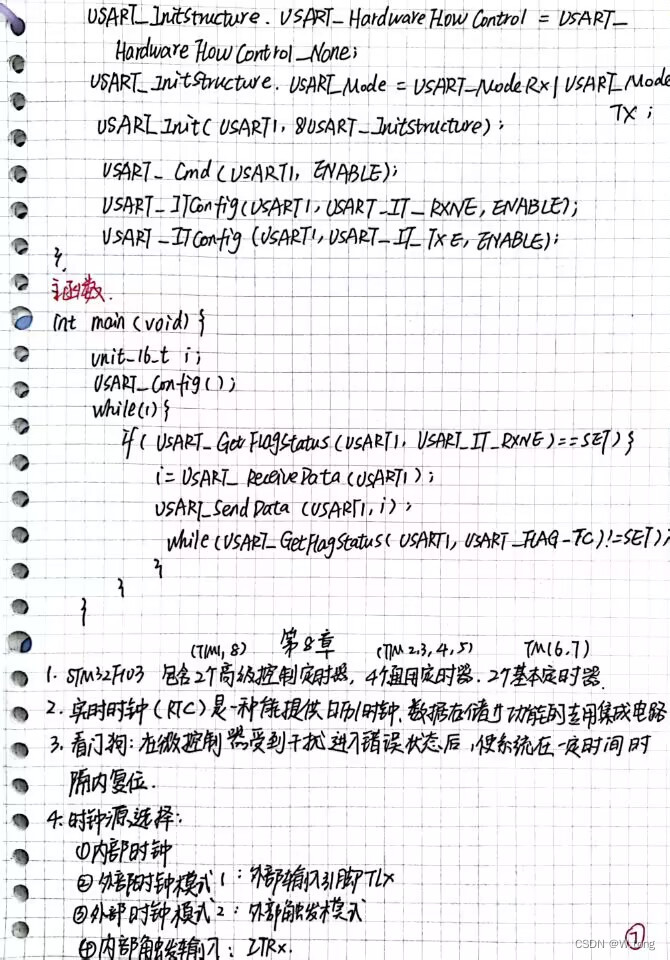 USART_InitStructure. USART_HardwareFlowControl = USART_
HardwareFlowControl_None;
USART_InitStructure. USART_Mode = USART_ModeRx | USART_Mode
TX ;
USART_Init( USART1, &USART_InitStructure);
USART_Cmd (USART1, ENABLE);
USART_ITConfig(USART1, USART_IT_RXNE, ENABLE);
USART_ITConfig (USART1, USART_IT_TXE, ENABLE);
}.
主函数.
int main (void) {
unit_16_t i;
USART_Config();
while(1){
if( USART_GetFlagStatus (USART1, USART_IT_RXNE)==SET) {
i= USART_ReceiveData (USART1);
USART_SendData (USART1, i);
while (USART_GetFlagStatus( USART1, USART_FLAG-TC)!=SET);
}
}
}
(TIM1, 8) 第8章 (TIM 2,3,4,5) TIM(6.7)
1. STM32F103 包含2个高级控制定时器, 4个通用定时器. 2个基本定时器.
2. 实时时钟(RTC)是一种能提供日历/时钟、数据存储等功能的专用集成电路
3. 看门狗: 在微控制器受到干扰进入错误状态后,使系统在一定时间时
隔内复位.
4. 时钟源选择:
①内部时钟
②外部时钟模式1: 外部输入引脚TIx
③外部时钟模式2: 外部触发模式
④内部触发输入: ITRx.
7
CSDN @W.